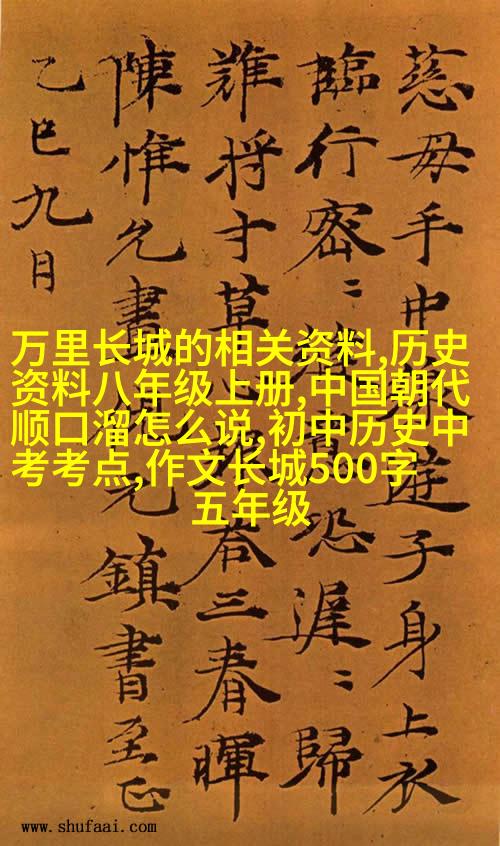 慈母手中線遊子身上衣
臨行密〻縫意恐遲〻歸
難將寸草心報答三春暉
陳惟允書 元鎮書至正
乙巳九月
万里长城的相关资料,历史
资料八年级上册,中国朝代
顺口溜怎么说,初中历史中
考考点,作文长城500字
五年级
www.shufaai.com